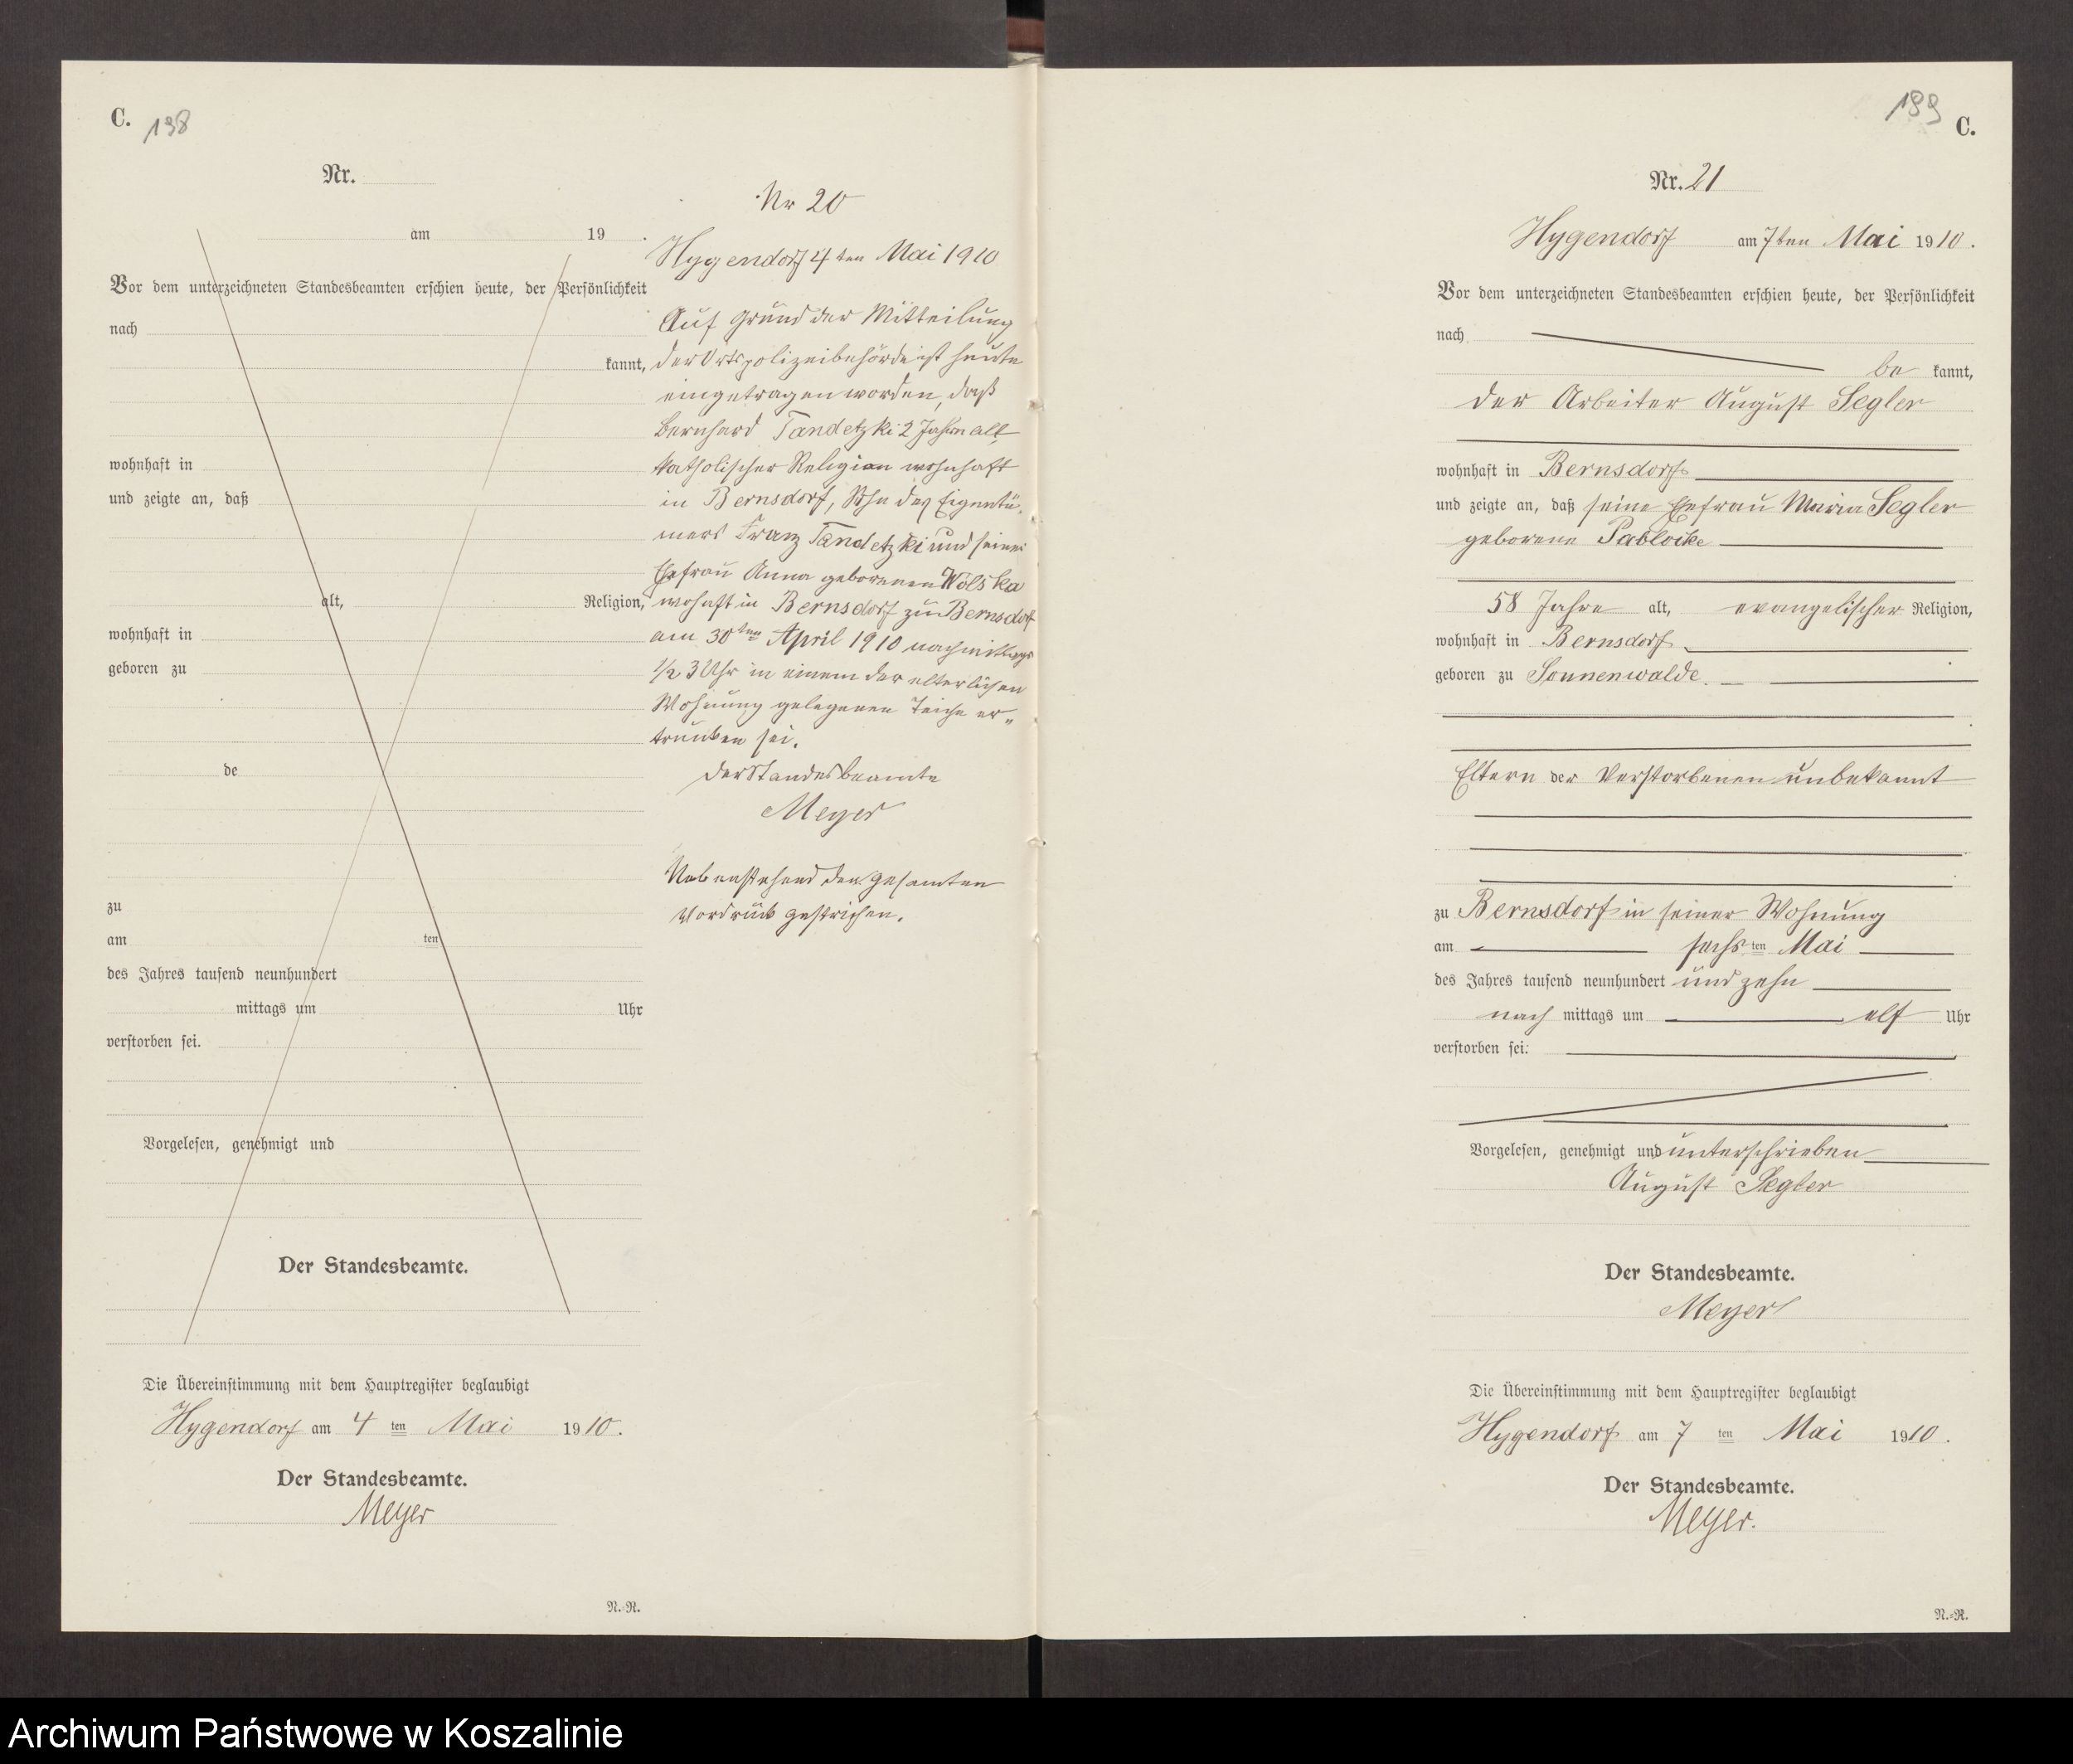 C. 198
Nr.
am 19 .
Vor dem unterzeichneten Standesbeamten erschien heute, der Persönlichkeit
nach
kannt,
wohnhaft in
und zeigte an, daß
alt, Religion,
wohnhaft in
geboren zu
de
zu
am ten
des Jahres tausend neunhundert
mittags um Uhr
verstorben sei.
Vorgelesen, genehmigt und
Der Standesbeamte.
Die Übereinstimmung mit dem Hauptregister beglaubigt
Hygendorf am 4 ten Mai 1910.
Der Standesbeamte.
Meyer
N.-R.
Nr 20
Hygendorf 4ten Mai 1910
Auf Grund der Mitteilung
der Ortspolizeibehörde ist heute
eingetragen worden, daß
Bernhard Tandetzki 2 Jahre alt
katholischer Religion wohnhaft
in Bernsdorf, Sohn des Eigentü-
mers Franz Tandetzki und seiner
Ehefrau Anna geborenen Wölska
wohaft in Bernsdorf zu Bernsdorf
am 30ten April 1910 nachmittags
1/2 3 Uhr in einem der elterlichen
Wohnung gelegenen Teiche er-
trunken sei.
Der Standesbeamte
Meyer
Nebenstehend den gesamten
Vordruck gestrichen.
199 C.
Nr. 21
Hygendorf am 7ten Mai 1910.
Vor dem unterzeichneten Standesbeamten erschien heute, der Persönlichkeit
nach
be kannt,
der Arbeiter August Segler
wohnhaft in Bernsdorf
und zeigte an, daß seine Ehefrau Maria Segler
geborene Pablocke
58 Jahre alt, evangelischer Religion,
wohnhaft in Bernsdorf
geboren zu Sonnenwalde.
Eltern der Verstorbenen unbekannt
zu Bernsdorf in seiner Wohnung
am sechs ten Mai
des Jahres tausend neunhundert und zehn
nach mittags um elf Uhr
verstorben sei.
Vorgelesen, genehmigt und unterschrieben
August Segler
Der Standesbeamte.
Meyer
Die Übereinstimmung mit dem Hauptregister beglaubigt
Hygendorf am 7 ten Mai 1910.
Der Standesbeamte.
Meyer.
N.-R.
Archiwum Państwowe w Koszalinie